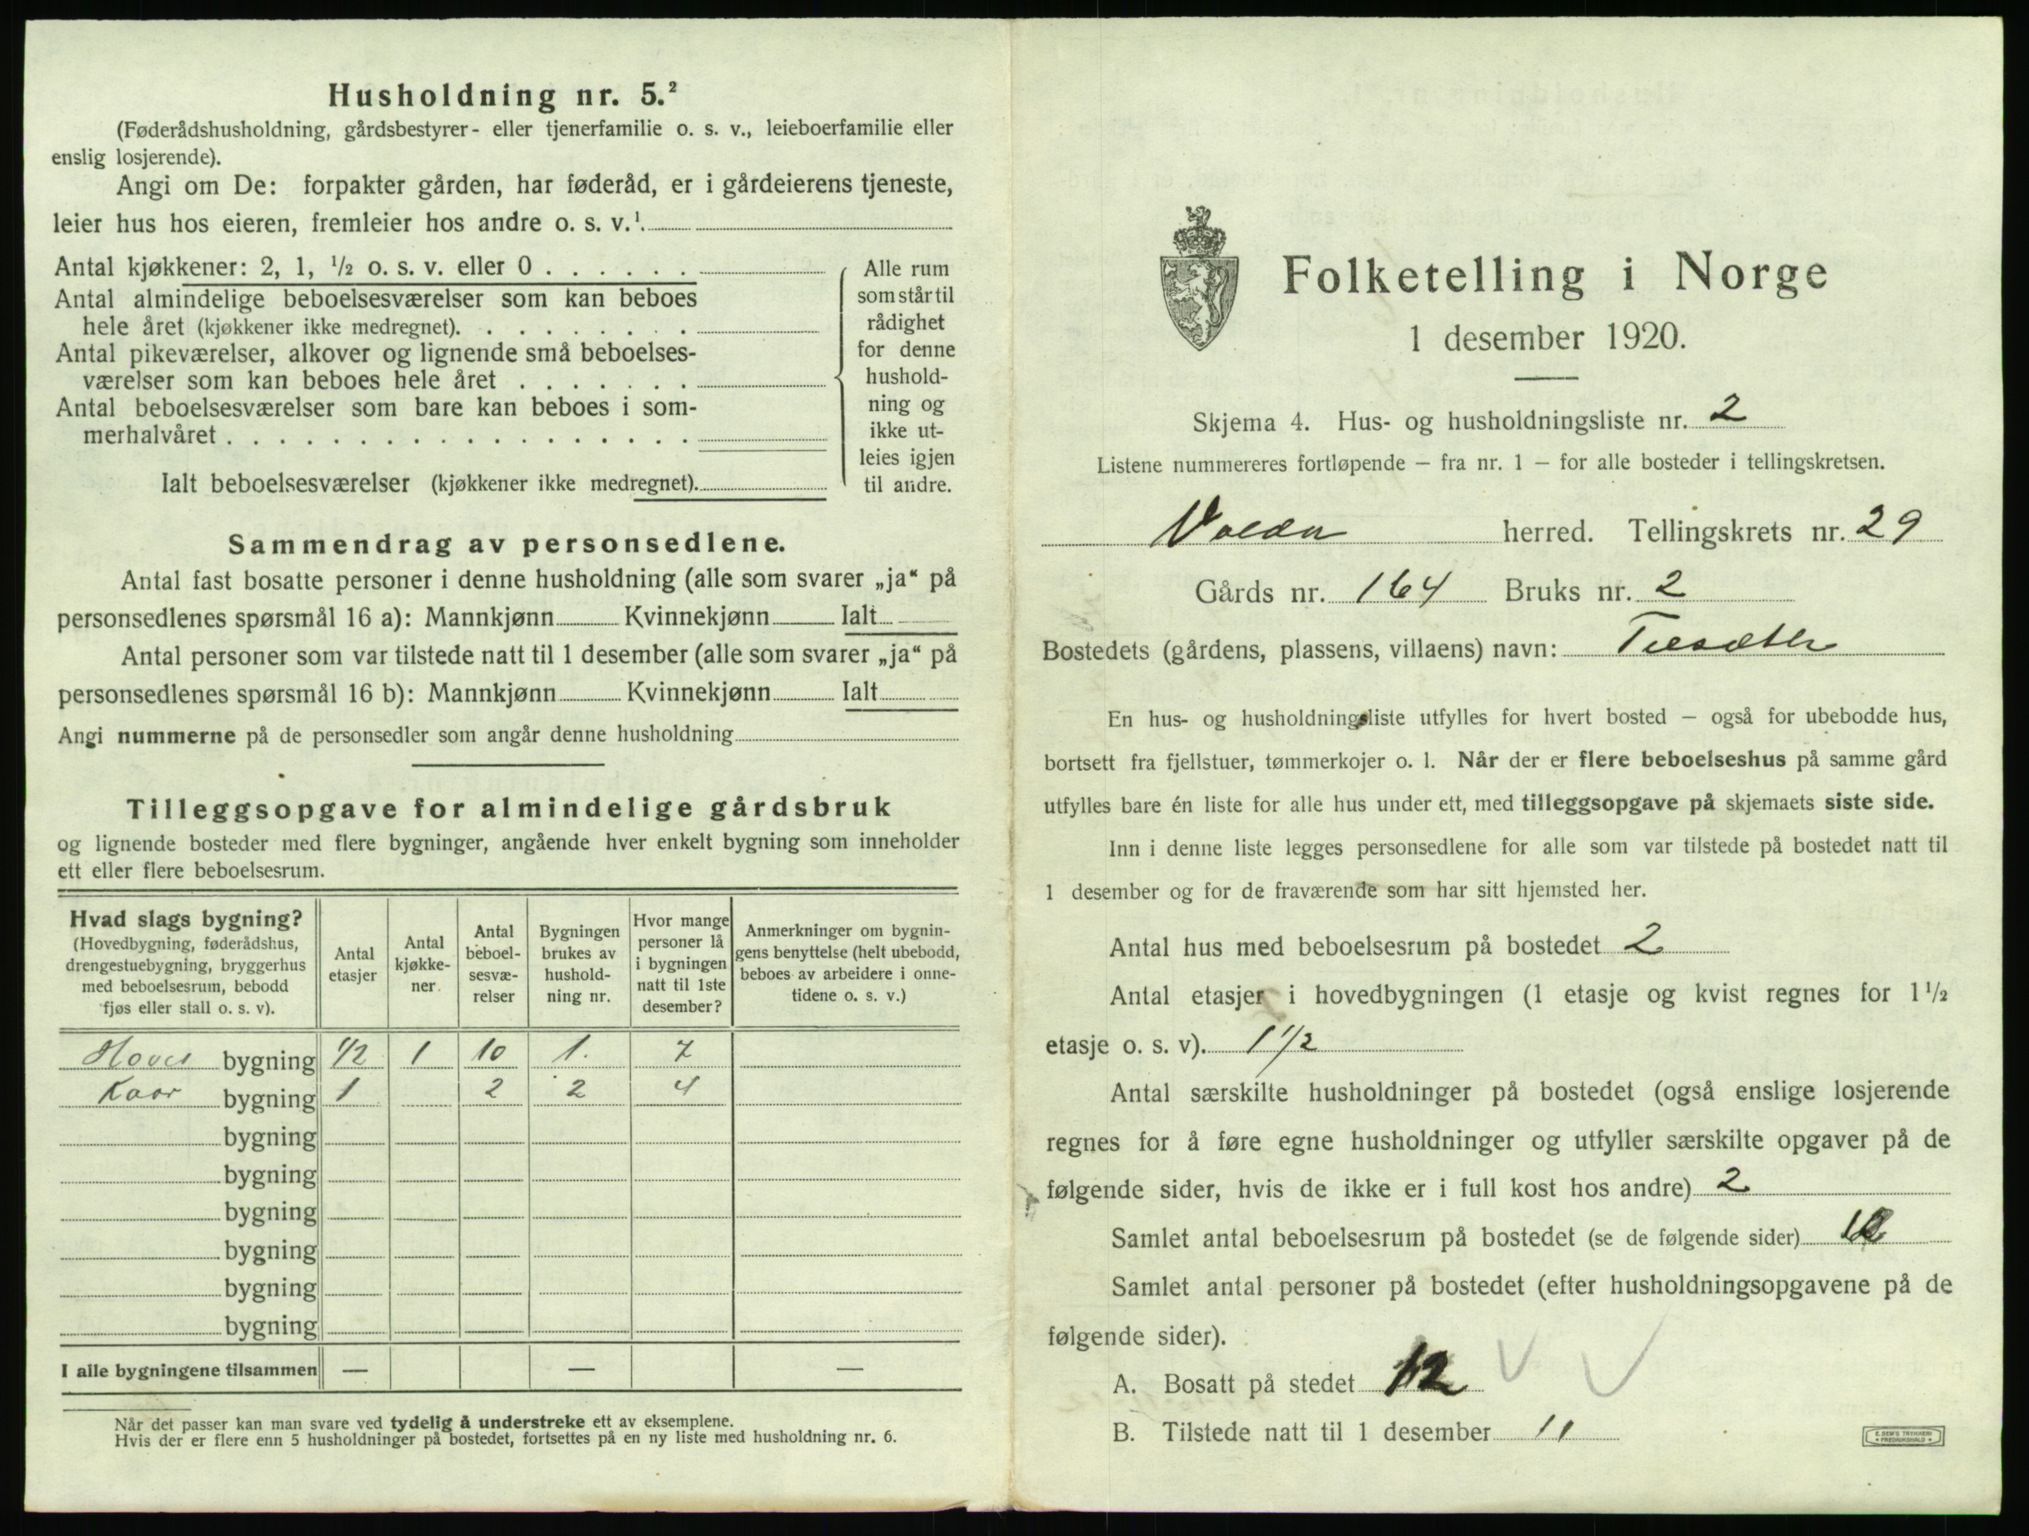 Husholdning nr. 5.²
(Føderådshusholdning, gårdsbestyrer- eller tjenerfamilie o. s. v., leieboerfamilie eller
enslig losjerende).
Angi om De: forpakter gården, har føderåd, er i gårdeierens tjeneste,
leier hus hos eieren, fremleier hos andre o. s. v.¹.
Antal kjøkkener: 2, 1, ½ o. s. v. eller 0 . . . . . .
Antal almindelige beboelsesværelser som kan beboes
hele året (kjøkkener ikke medregnet). . . . . . . . .
Antal pikeværelser, alkover og lignende små beboelses-
værelser som kan beboes hele året . . . . . . .
Antal beboelsesværelser som bare kan beboes i som-
merhalvåret . . . . . . . . . . . . . . . . . .
Ialt beboelsesværelser (kjøkkener ikke medregnet).
Alle rum
som står til
rådighet
for denne
hushold-
ning og
ikke ut-
leies igjen
til andre.
Sammendrag av personsedlene.
Antal fast bosatte personer i denne husholdning (alle som svarer „ja“ på
personsedlenes spørsmål 16 a): Mannkjønn Kvinnekjønn Ialt
Antal personer som var tilstede natt til 1 desember (alle som svarer „ja“ på
personsedlenes spørsmål 16 b): Mannkjønn Kvinnekjønn Ialt
Angi nummerne på de personsedler som angår denne husholdning
Tilleggsopgave for almindelige gårdsbruk
og lignende bosteder med flere bygninger, angående hver enkelt bygning som inneholder
ett eller flere beboelsesrum.
Hvad slags bygning?
(Hovedbygning, føderådshus,
drengestuebygning, bryggerhus
med beboelsesrum, bebodd
fjøs eller stall o. s. v).
Antal
etasjer
Antal
kjøkke-
ner.
Antal
beboel-
sesvæ-
relser
Bygningen
brukes av
hushold-
ning nr.
Hvor mange
personer lå
i bygningen
natt til 1ste
desember?
Anmerkninger om bygnin-
gens benyttelse (helt ubebodd,
beboes av arbeidere i onne-
tidene o. s. v.)
Hoved bygning 1/2 1 10 1. 7
Kaar bygning 1 2 2 4
bygning
bygning
bygning
bygning
bygning
bygning
I alle bygningene tilsammen — — —
Når det passer kan man svare ved tydelig å understreke ett av eksemplene.
Hvis der er flere enn 5 husholdninger på bostedet, fortsettes på en ny liste med husholdning nr. 6.
Folketelling i Norge
1 desember 1920.
Skjema 4. Hus- og husholdningsliste nr. 2
Listene nummereres fortløpende — fra nr. 1 — for alle bosteder i tellingskretsen.
Volda herred. Tellingskrets nr. 29
Gårds nr. 164 Bruks nr. 2
Bostedets (gårdens, plassens, villaens) navn:
En hus- og husholdningsliste utfylles for hvert bosted — også for ubebodde hus,
bortsett fra fjellstuer, tømmerkojer o. l. Når der er flere beboelseshus på samme gård
utfylles bare én liste for alle hus under ett, med tilleggsopgave på skjemaets siste side.
Inn i denne liste legges personsedlene for alle som var tilstede på bostedet natt til
1 desember og for de fraværende som har sitt hjemsted her.
Antal hus med beboelsesrum på bostedet 2
Antal etasjer i hovedbygningen (1 etasje og kvist regnes for 1½
etasje o. s. v). 1 1/2
Antal særskilte husholdninger på bostedet (også enslige losjerende
regnes for å føre egne husholdninger og utfyller særskilte opgaver på de
følgende sider, hvis de ikke er i full kost hos andre) 2
Samlet antal beboelsesrum på bostedet (se de følgende sider) 12
Samlet antal personer på bostedet (efter husholdningsopgavene på de
følgende sider).
A. Bosatt på stedet 12
B. Tilstede natt til 1 desember 11
E. SEM'S TRYKKERI
FREDRIKSHALD